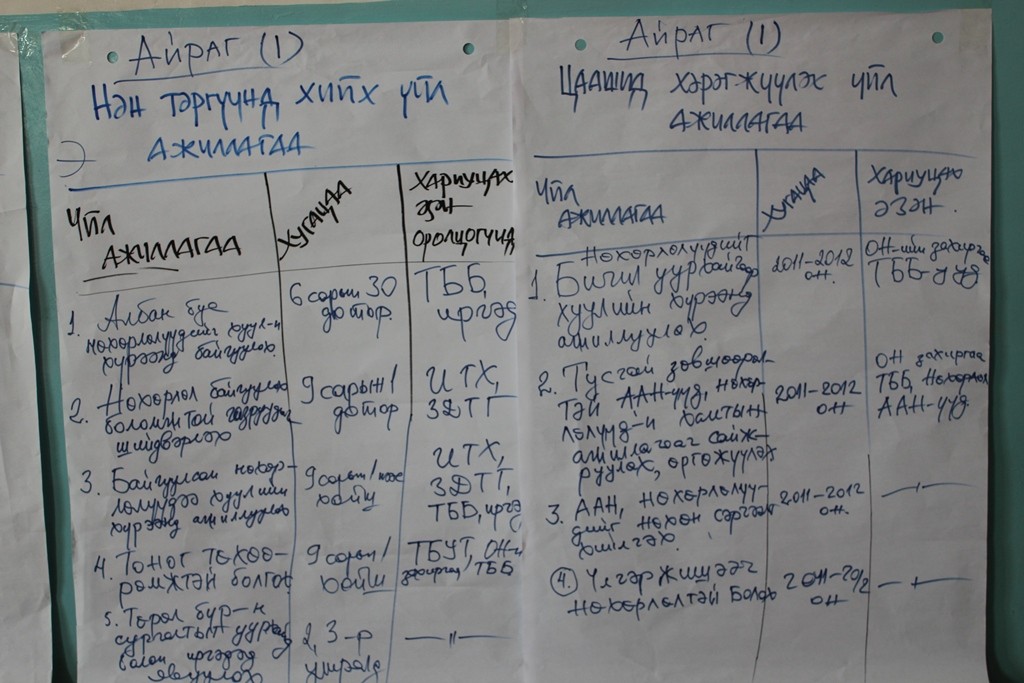 Айраг (1)
Нэн тэргүүнд хийх үйл
ажиллагаа
Үйл
ажиллагаа
Хугацаа
Хариуцах
эзэн
оролцогчид
1. Албан бус
нөхөрлөлүүдийг хуул-н
хүрээнд байгуулох
6 сарын 30
дотор
ТББ,
иргэд
2. Нөхөрлөл байгуулах
боломжтой газруудыг
шийдвэрлэх
9 сарын 1
дотор
ИТХ,
ЗДТГ
3. Байгуулсан нөхөр-
лөлүүдээ хуулийн
хүрээнд ажиллуулах
9 сарын 1
хойш
ИТХ,
ЗДТГ,
ТББ, иргэд
4. Тоног төхөө-
рөмжтэй болгох
9 сарын 1
хойш
ТБУТ, ОН-н
захиргаа, ТББ
5. Төрөл бүр-н
сургалтыг уурхай
болон иргэдэд
явуулах
2, 3-р
улиралд
—"—
Айраг (1)
Цаашид хэрэгжүүлэх үйл
ажиллагаа
Үйл
ажиллагаа
Хугацаа
Хариуцах
эзэн.
Нөхөрлөлүүдийг
1. Бичил уурхайгаар
хуулийн хүрээнд
ажиллуулах.
2011-2012
он.
ОН-ийн захиргаа
ТББ-ууд
2. Тусгай зөвшөөрөл-
тэй ААН-ууд, нөхөр-
лөлүүд-н хамтын
ажиллагааг сайж-
руулах, өргөжүүлэх
2011-2012
он
ОН захиргаа
ТББ, Нөхөрлөл
ААН-ууд
3. ААН, нөхөрлөлүү-
дийг нөхөн сэргээлт
хийлгэх.
2011-2012
он.
—"—
4. Үлгэр жишээч
нөхөрлөлтэй болох
2011-2012
он
—"—